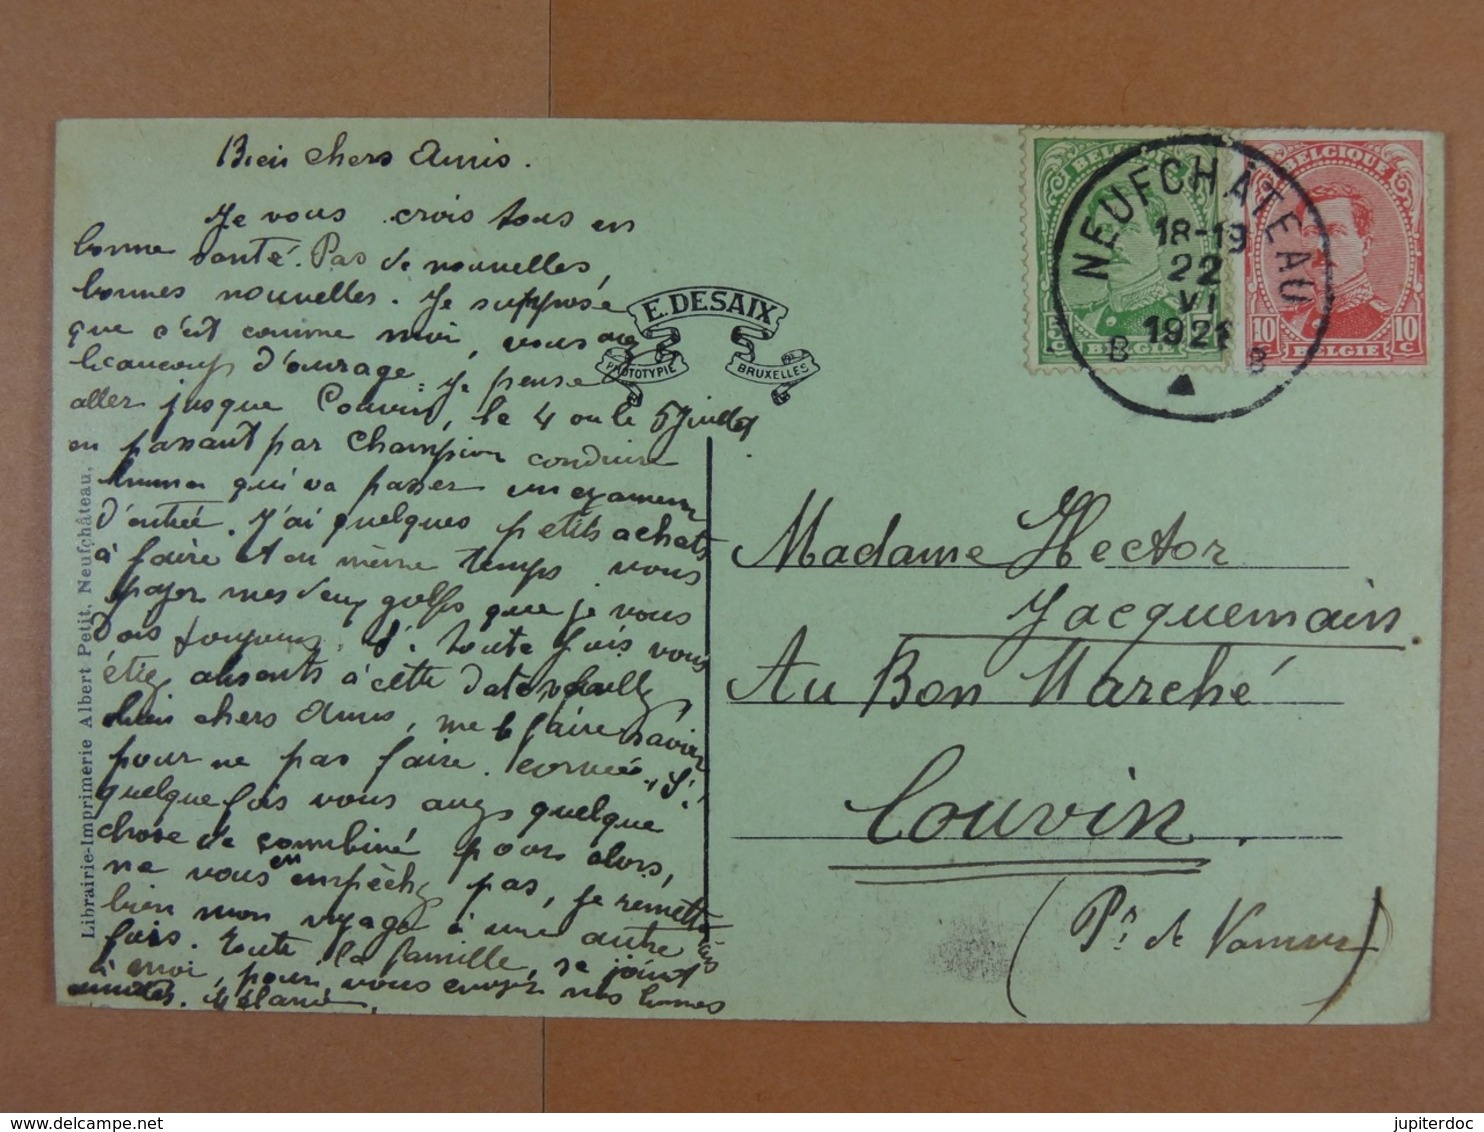 Bien chers Amis.
Je vous crois tous en
bonne santé. Pas de nouvelles,
bonnes nouvelles. Je suppose
que c'est comme moi, vous avez
beaucoup d'ouvrage. Je pense
aller jusque Couvin, le 4 ou le 5 Juillet
en passant par Champion conduire
qui va passer un examen
d'entrée. J'ai quelques petits achats
à faire et en même temps vous
payer mes deux golfs que je vous
dois toujours. Si toute fois vous
étiez absents à cette date veuillez
bien chers Amis, me le faire savoir
pour ne pas faire corvée. Si
quelquefois vous avez quelque
chose de combiné pour alors,
ne vous en empêchez pas, je remettrais
bien mon voyage à une autre
fois. Toute la famille se joint
à moi, pour vous envoyer nos bonnes
amitiés. Mélanie.
E. DESAIX
PHOTOTYPIE
BRUXELLES
Librairie-Imprimerie Albert Petit, Neufchâteau.
BELGIQUE
5 C
BELGIE
BELGIQUE
10 C 10 C
BELGIE
NEUFCHÂTEAU
18-19
22
VI
1921
B B
Madame Hector
Jacquemain.
Au Bon Marché
Couvin.
(Pr. de Namur)
jupiterdoc
delcampe.net